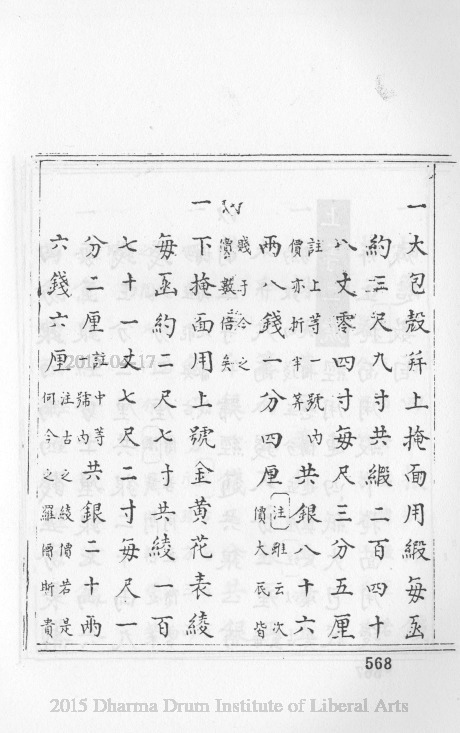 一大包殼并上掩面用緞每函
約三尺九寸共緞二百四十
八丈零四寸每尺三分五厘
註上等一號內
價亦折半算
共銀八十六
兩八錢一分四厘
注雖云次
價大辰皆
賤于今之
價數倍矣
一下掩面用上號金黃花表綾
每函約二尺七寸共綾一百
七十一丈七尺二寸每尺一
分二厘
中等
號內
共銀二十兩
六錢六厘
注古之綾價若是
何今之羅價斯貴
568
2015 Dharma Drum Institute of Liberal Arts